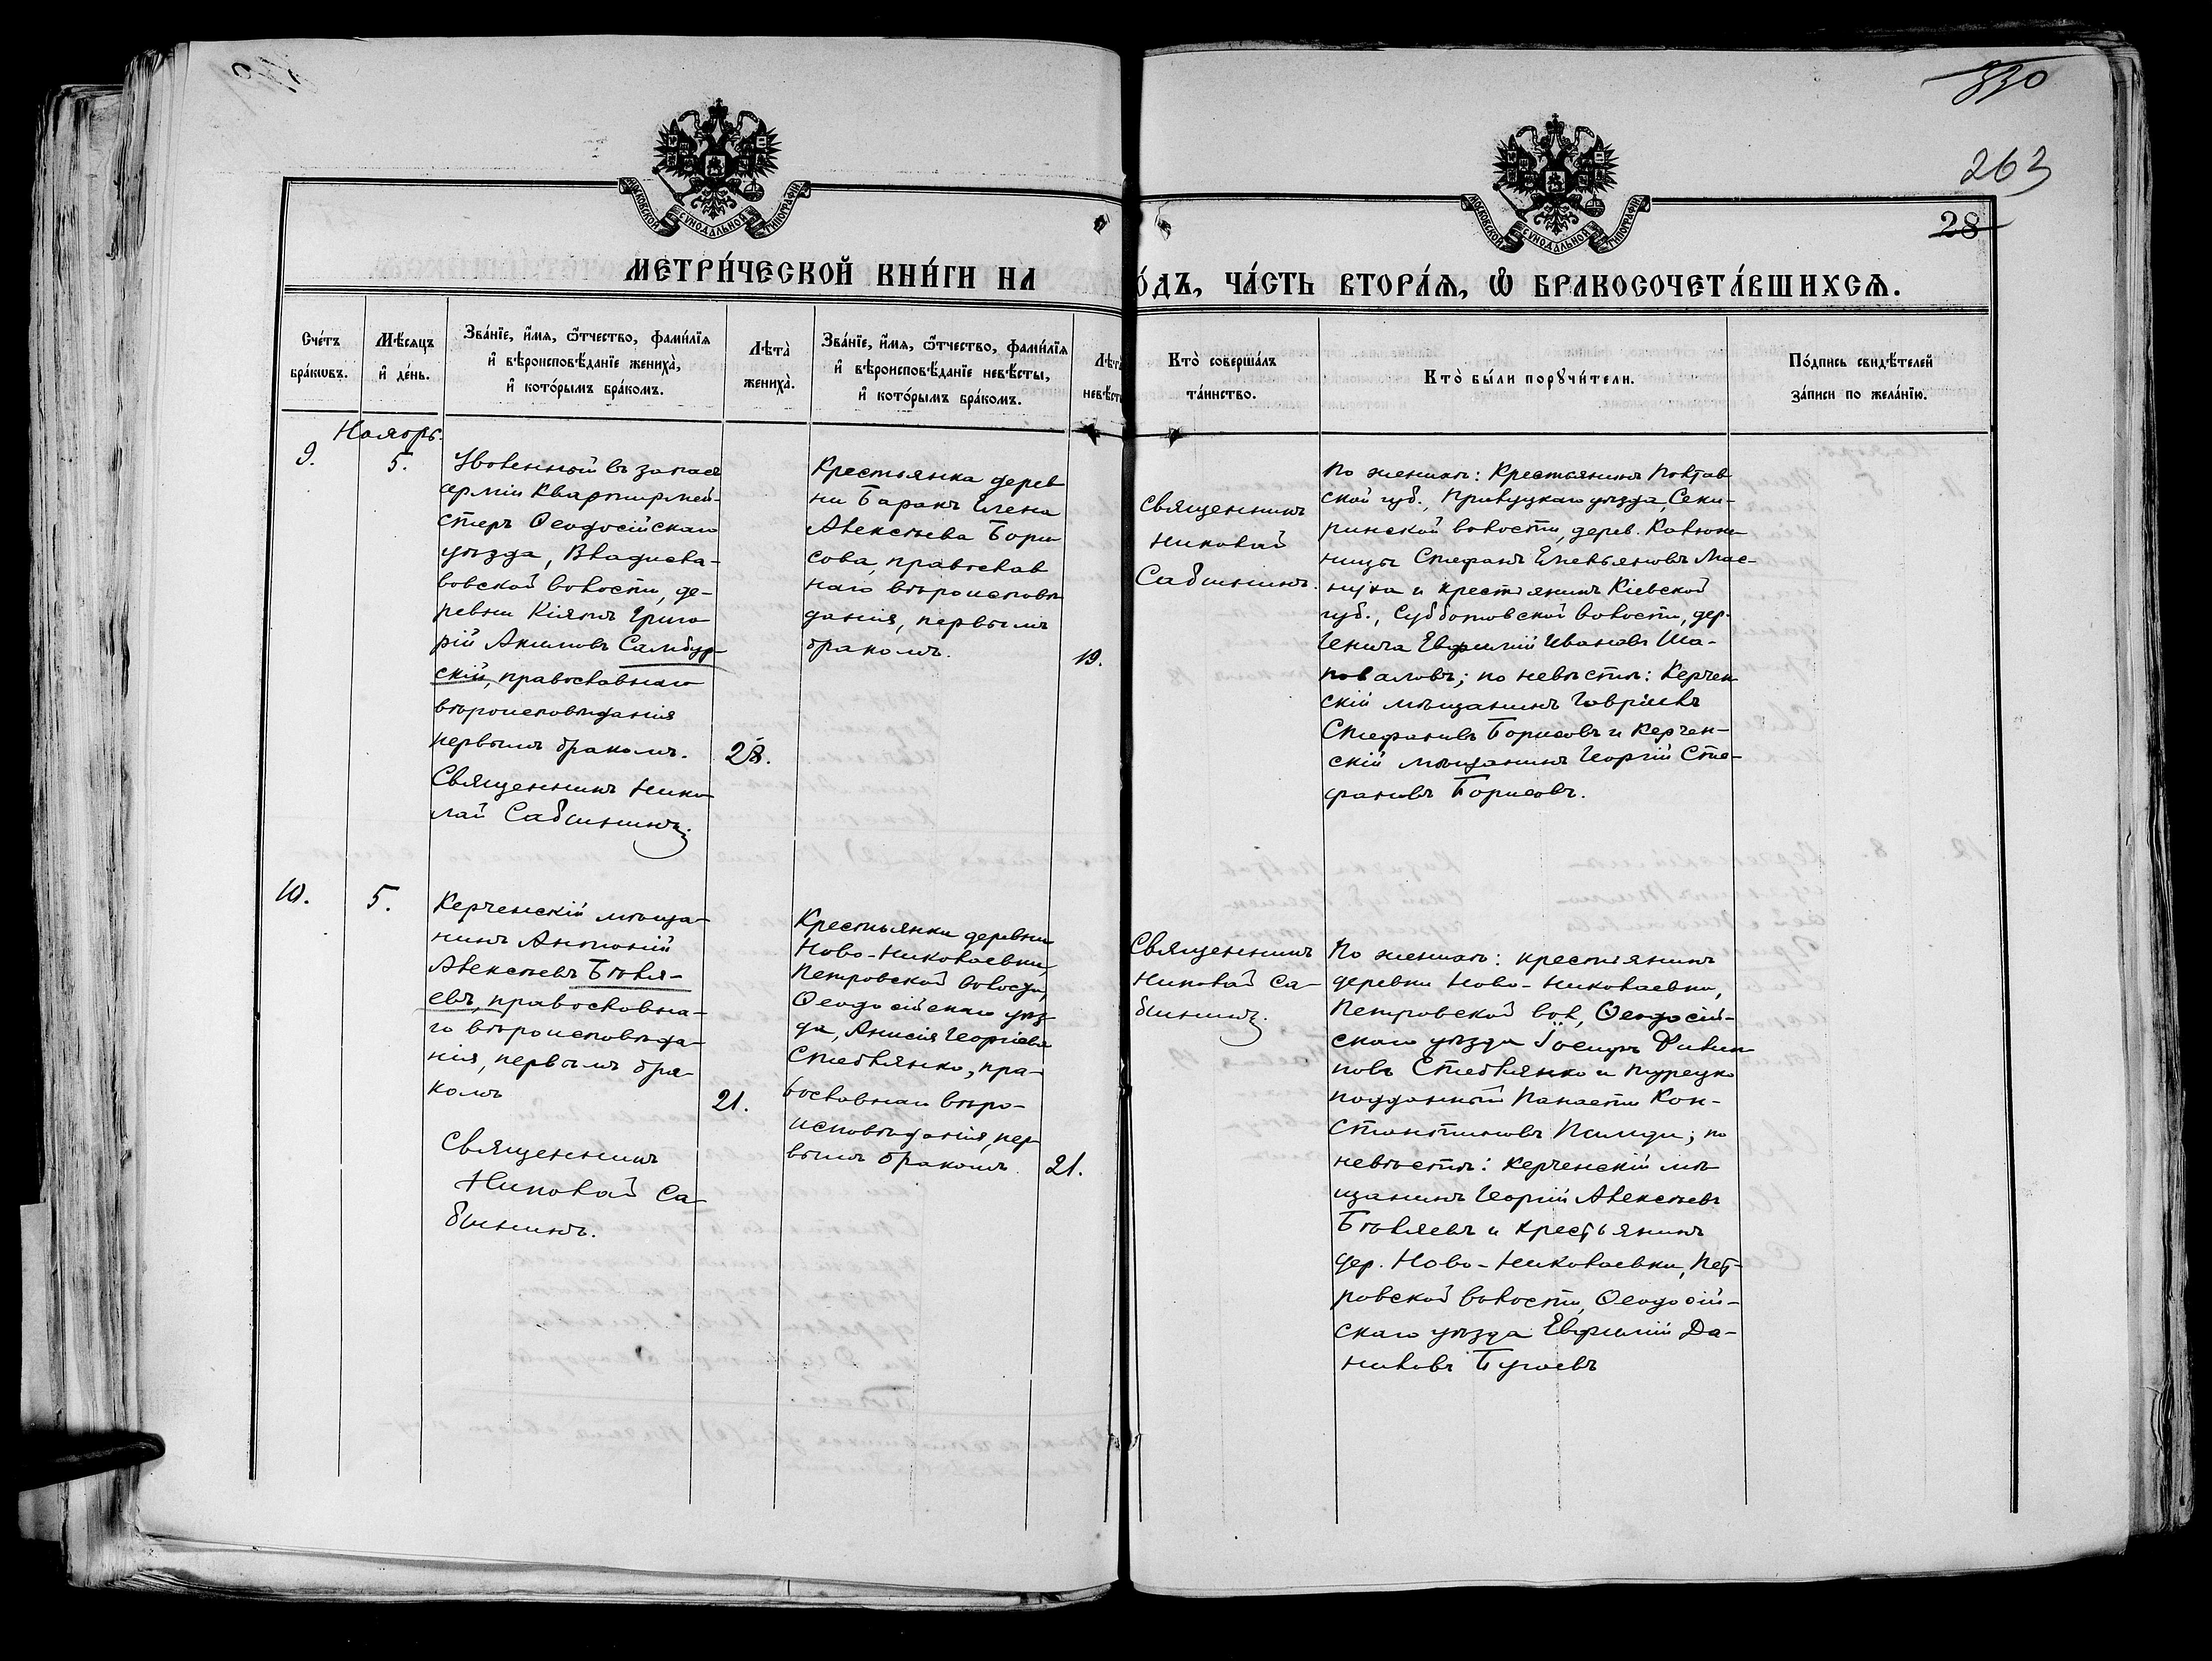 330
263
28
МОСКОВСКОЙ СѴНОДАЛЬНОЙ ТИПОГРАФІИ
МОСКОВСКОЙ СѴНОДАЛЬНОЙ ТИПОГРАФІИ
МЕТРИ́ЧЕСКОЙ КНИ́ГИ НА
О́ДЪ, ЧА́СТЬ ВТОРА́Ѧ, Ѽ БРАКОСОЧЕТА́ВШИХСѦ.
Сче́тъ бра́кѡвъ.
Мѣ́сяцъ и҆ де́нь.
Зва́нїе, и҆́мѧ, ѻ҆́тчество, фами́лїѧ
и҆ вѣроисповѣ́данїе жениха̀,
и҆ кото́рымъ бра́комъ.
Лѣта̀
жениха̀.
Зва́нїе, и҆́мѧ, ѻ҆́тчество, фами́лїѧ
и҆ вѣроисповѣ́данїе невѣ́сты,
и҆ кото́рымъ бра́комъ.
Лѣта̀
невѣ́сты
Кто̀ соверша́лъ
та́инство.
Кто̀ бы́ли порꙋчи́тели.
По́дпись свидѣ́телей
за́писи по жела́нїю.
Ноябрь.
9.
5.
Уволенный въ запасъ
арміи Квартирмей-
стеръ Ѳеодосійскаго
уѣзда, Владисла-
вовской волости, де-
ревни Кіятъ Григо
рій Акимовъ Самбур-
скій, православнаго
вѣроисповѣданія
первымъ бракомъ.
Священникъ Нико
лай Сабининъ.
28.
Крестьянка дерев
ни Баракъ Елена
Алексѣева Бори
сова, православ
наго вѣроисповѣ
данія, первымъ
бракомъ.
19.
Священникъ
Николай
Сабининъ.
По женихѣ: Крестьянинъ Полтав
ской губ., Прилуцкаго уѣзда, Секи-
ринской волости, дерев.
ницы Стефанъ Емельяновъ Мас-
нуха и крестьянинъ Кіевской
губ., Субботовской волости, дер.
Евфимій Ивановъ Ша-
поваловъ; по невѣстѣ: Керчен
скій мѣщанинъ Гавріилъ
Стефановъ Борисовъ и Керчен-
скій мѣщанинъ Георгій Сте-
фановъ Борисовъ.
10.
5.
Керченскій мѣща-
нинъ Антоній
Алексѣевъ Бѣля-
евъ, православна-
го вѣроисповѣда-
нія, первымъ бра-
комъ
Священникъ
Николай Са
бининъ.
21.
Крестьянка деревни
Ново-Николаевки,
Петровской волости,
Ѳеодосійскаго уѣз-
да, Анисія Георгіева
Стеблянко, пра-
вославнаго вѣро-
исповѣданія, пер
вымъ бракомъ.
21.
Священникъ
Николай Са-
бининъ.
По женихѣ: крестьянинъ
деревни Ново-Николаевки,
Петровской вол, Ѳеодосій-
скаго уѣзда Іосифъ Филип
повъ Стеблянко и турецко
подданный Панаети Кон-
стантиновъ; по
невѣстѣ: Керченскій мѣ
щанинъ Георгій Алексѣевъ
Бѣляевъ и крестьянинъ
дер. Ново-Николаевки, Пет-
ровской волости, Ѳеодосій-
скаго уѣзда Евфимій Да-
ниловъ Бугаевъ